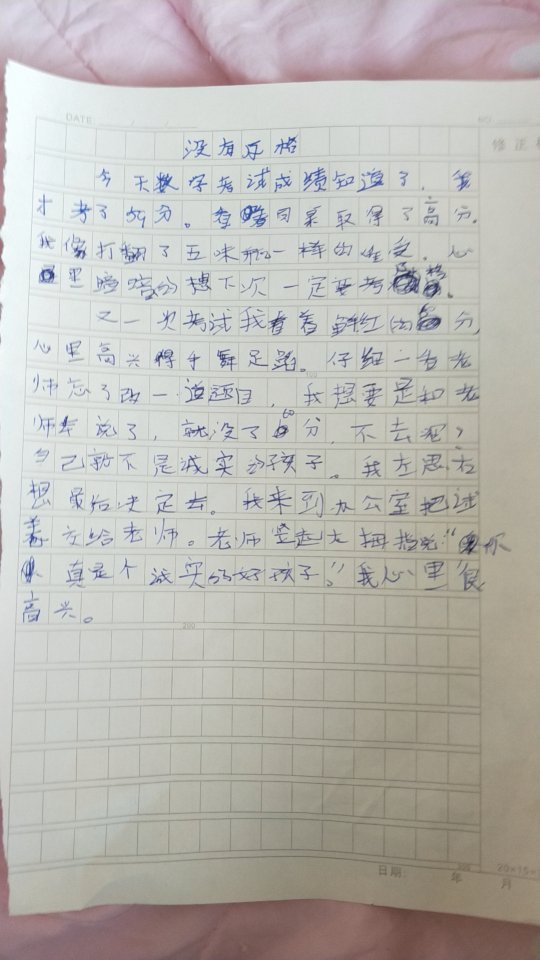 DATE: / /
NO.
修正
没有及格
今天数学考试成绩知道了，我
才考了59分。查 同桌取得了高分。
我像打翻了五味瓶一样的难受。心
里暗暗的想下次一定要考 格。
又一次考试我看着鲜红的 分，
心里高兴得手舞足蹈。仔细一看老
100
师忘了改一道题目，我想要是和老
师 说了，就没了60分，不去呢？
自己就不是诚实的孩子。我左思右
想最后决定去。我来到办公室把试
卷交给老师。老师竖起大拇指说“你
真是个诚实的好孩子。”我心里很
高兴。
200
300
20×15=
日期: 年 月